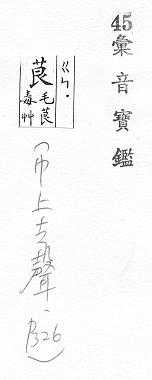 45彙音寶鑑
ㄍㄣˋ
茛 毛茛 毒艸
(巾上去聲.B26)